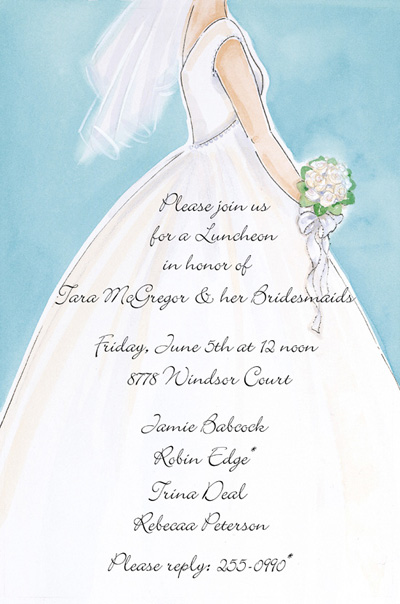 Please join us
for a Luncheon
in honor of
Tara McGregor & her Bridesmaids
Friday, June 5th at 12 noon
8778 Windsor Court
Jamie Babcock
Robin Edge*
Trina Deal
Rebecaa Peterson
Please reply: 255-0990*